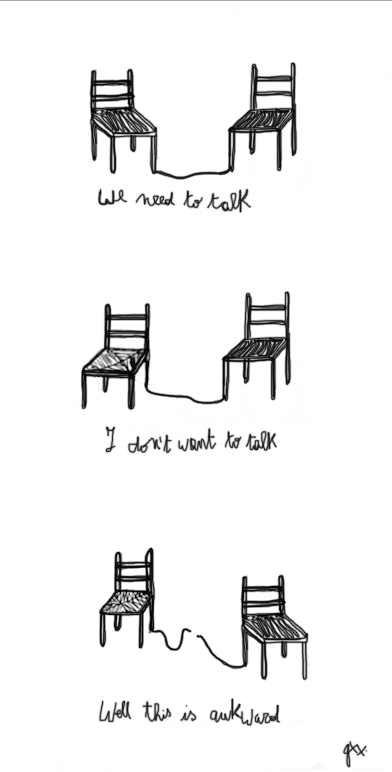 We need to talk
I don't want to talk
Well this is awkward